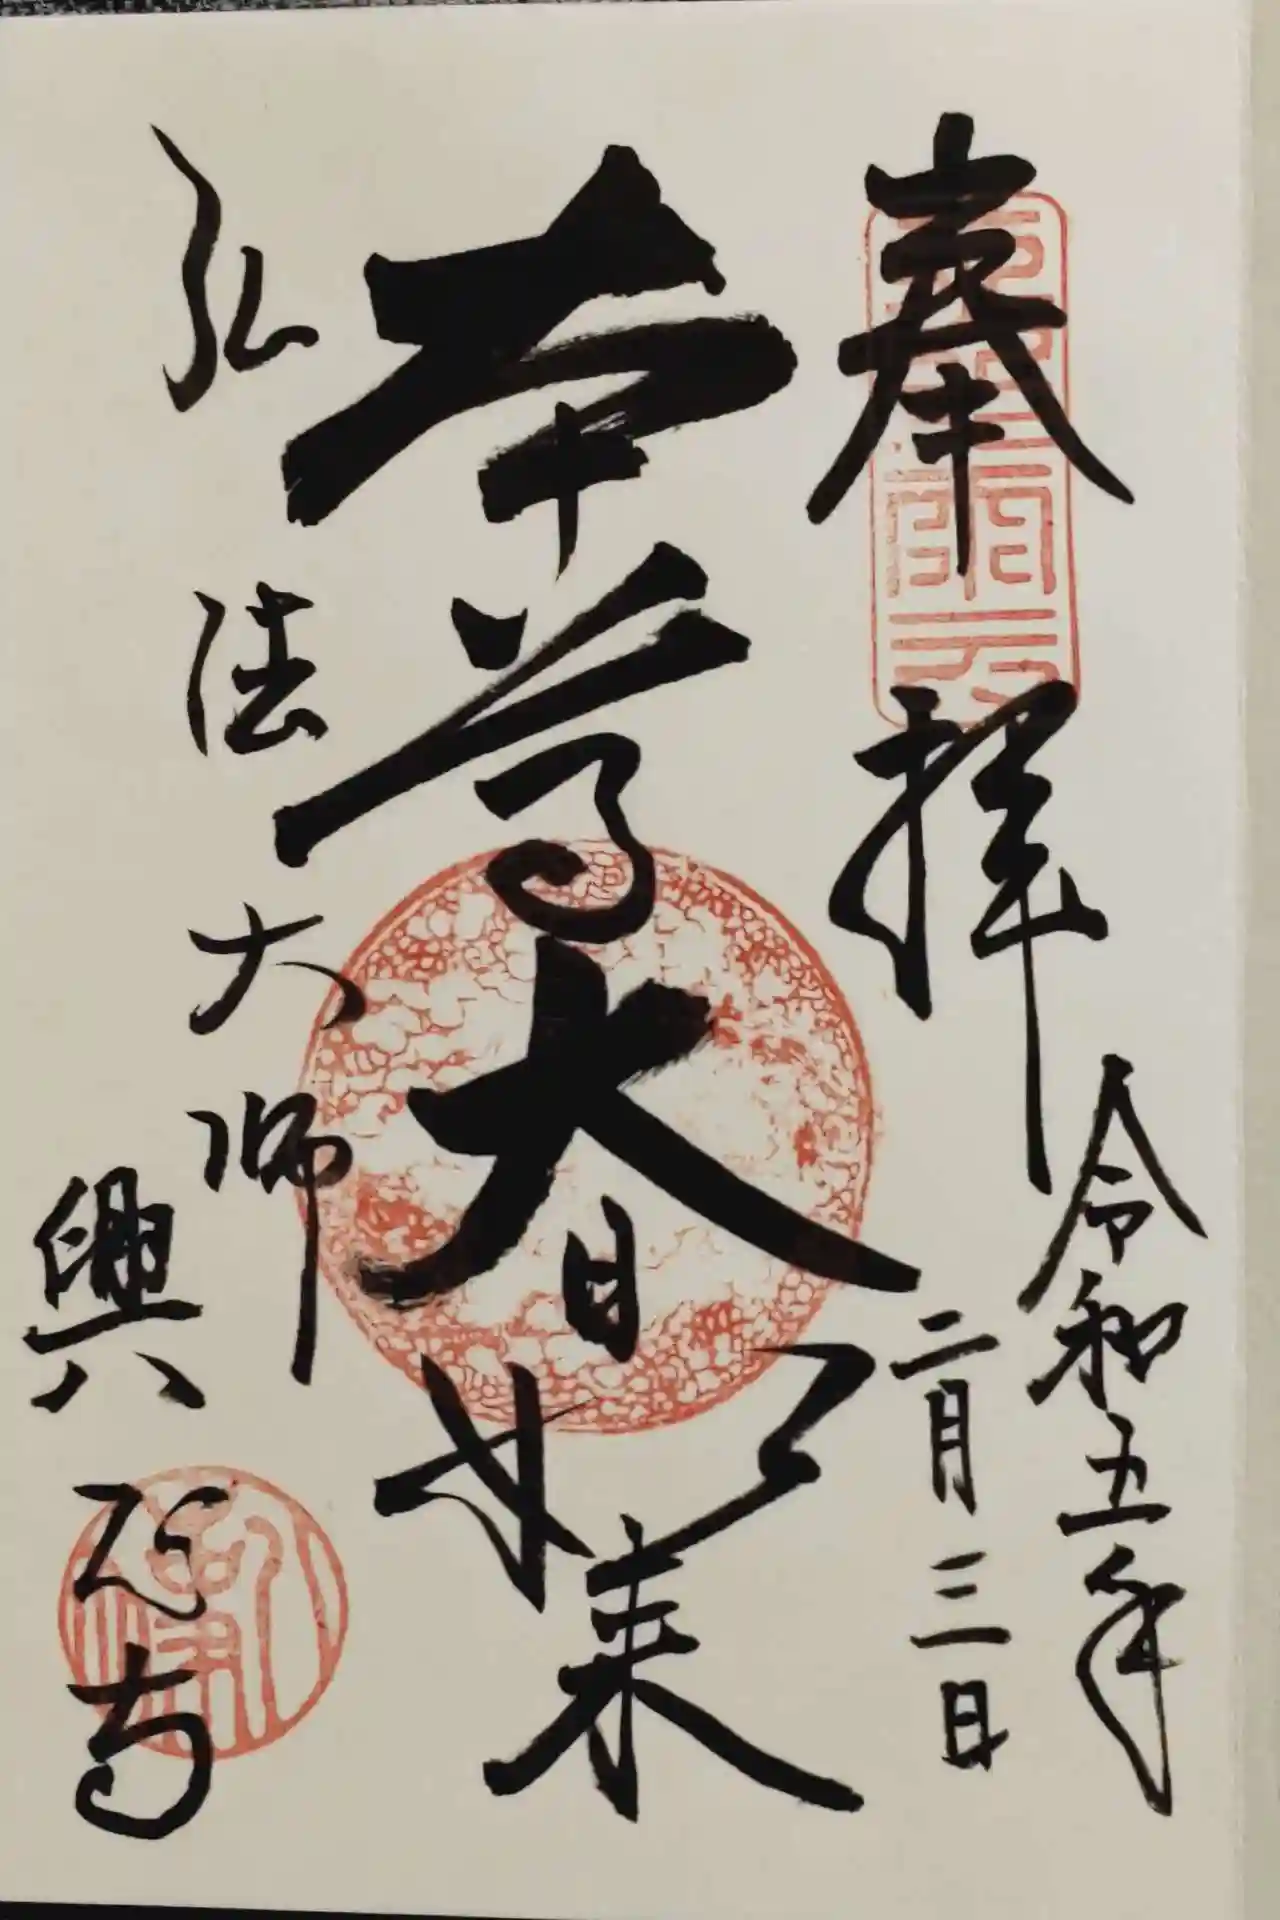 奉拝
令和五年
二月三日
本尊大日如来
弘法大師
興正寺